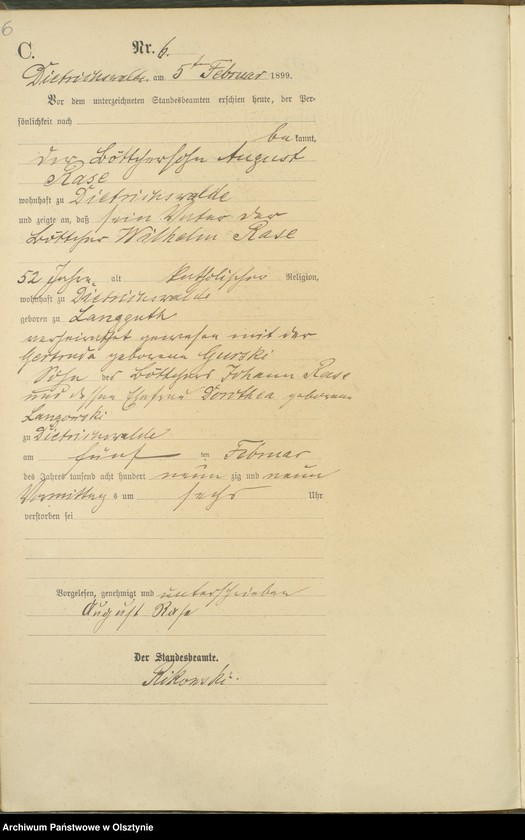 6
C.
Nr. 6.
Dietrichswalde am 5t Februar 1899.
Vor dem unterzeichneten Standesbeamten erschien heute, der Per-
sönlichkeit nach
be kannt,
der Böttchersohn August
Rase
wohnhaft zu Dietrichswalde
und zeigte an, daß sein Vater der
Böttcher Wilhelm Rase
52 Jahre alt katholischer Religion,
wohnhaft zu Dietrichswalde
geboren zu Langguth
verheirathet gewesen mit der
Gertruda geborene Gurski
Sohn des Böttchers Johann Rase
und dessen Ehefrau Dorothea geborene
Langowski
zu Dietrichswalde
am fünf ten Februar
des Jahres tausend acht hundert neun zig und neun
Vormittag s um sechs Uhr
verstorben sei
Vorgelesen, genehmigt und unterschrieben
August Rase
Der Standesbeamte.
Rikowski.
Archiwum Państwowe w Olsztynie